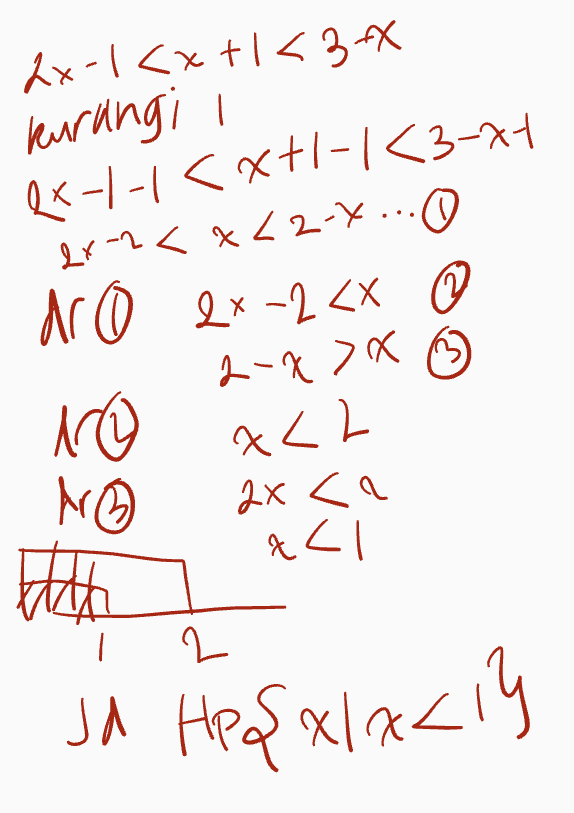 2x - 1 < x + 1 < 3 - x
kurangi 1
2x - 1 - 1 < x + 1 - 1 < 3 - x - 1
2x - 2 < x < 2 - x ... ①
dr ① 2x - 2 < x ②
2 - x > x ③
dr ② x < 2
dr ③ 2x < 2
x < 1
1 2
Jd Hp { x | x < 1 }